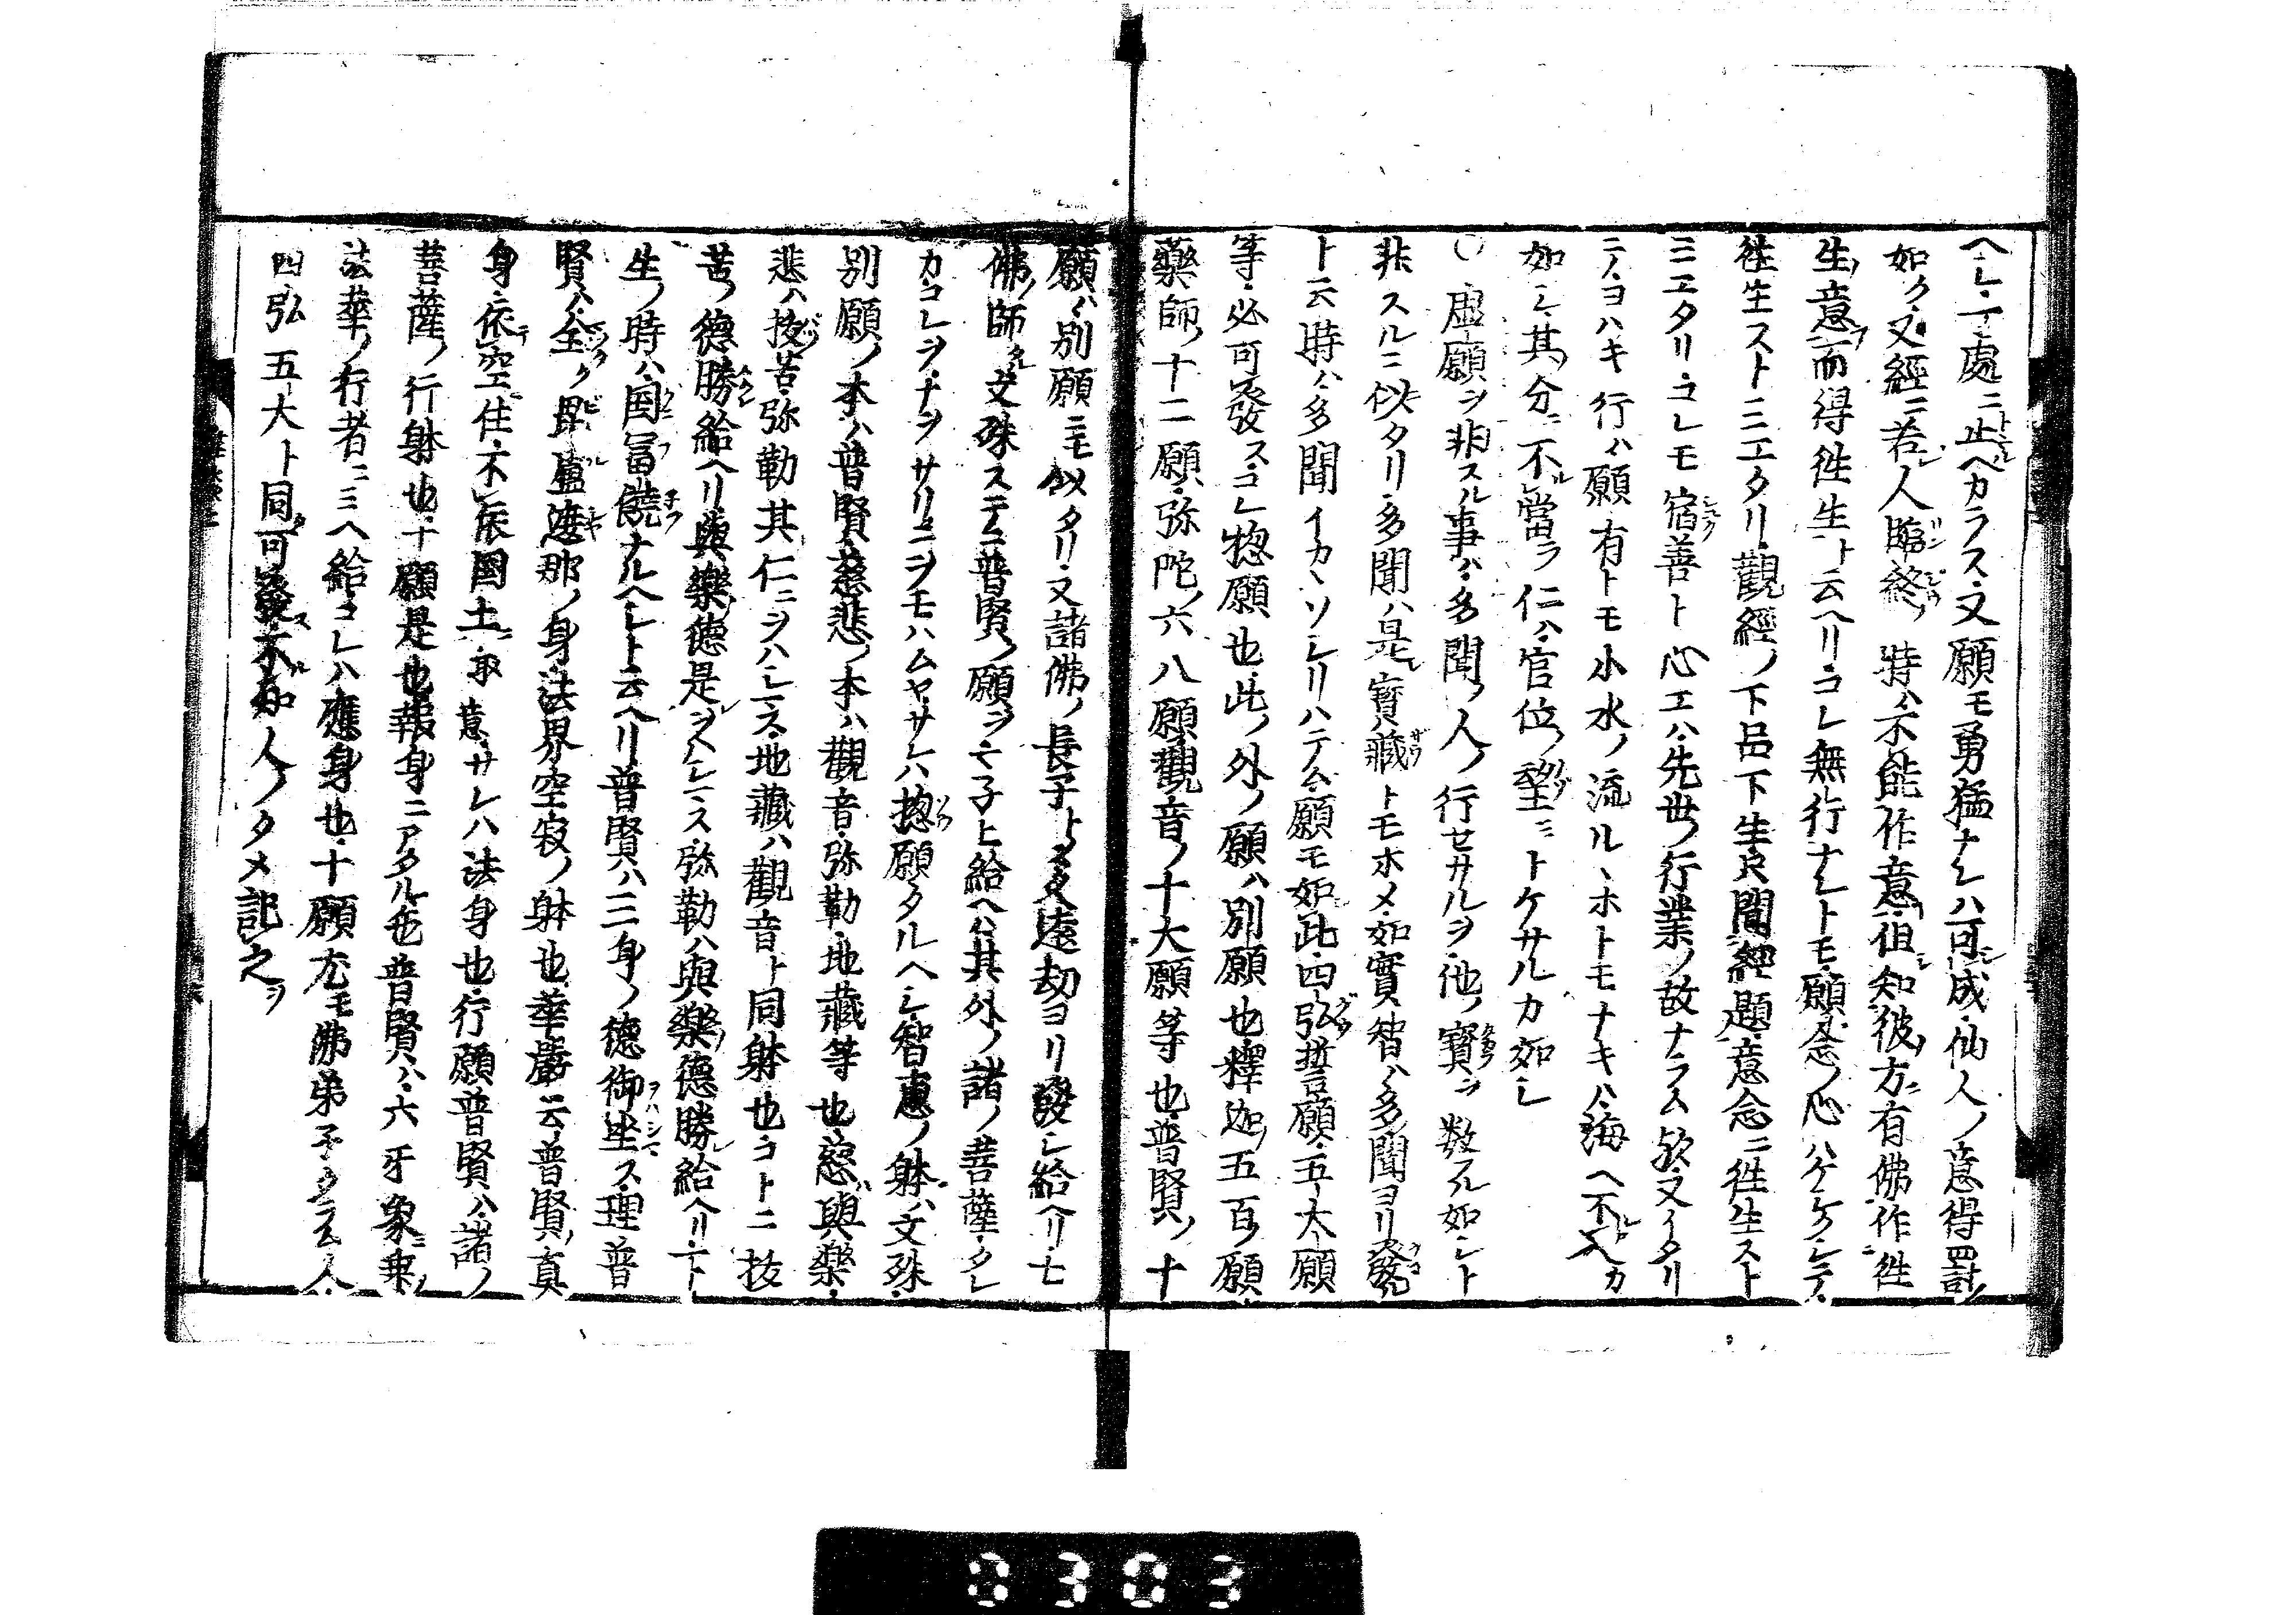 ヘシ一處ニ止ヘカラス又願モ勇猛ナレハ可成仙人ノ意得罸討ノ
如ク又經ニ若人臨終ノ時ハ不能作意但知彼方有佛作徃
生ノ意而得徃生ト云ヘリコレ無行ナレトモ願念ノ心ハケケクシテ
徃生ストミエタリ觀經ノ下品下生只聞經題意念ニ徃生スト
ミエタリコレモ宿善ト心エハ先世ノ行業ノ故ナラム欤又イタリ
ニノヨハキ行ハ願有トモ小水ノ流ルヽホトモナキハ海ヘ不入カ
如シ其分ニ不當ラ仁ハ官位ノ望ミトケサルカ如シ
〇虚願ヲ非スル事ハ多聞ノ人ノ行セサルヲ他ノ寳ヲ数ルニ如シト
非スルニ似タリ多聞ハ是寳藏トモホメ如實智ハ多聞ヨリ發
ト云時ハ多聞イカヽソシリハテム願モ如此四弘誓願五大願
等必可發スコレ惣願也此ノ外ノ願ハ別願也釋迦ノ五百ノ願
藥師ノ十二願弥陀ノ六八願觀音ノ十大願等也普賢ノ十
願ハ別願ニモ似タリ又諸佛ノ長子トメ久遠劫ヨリ發シ給ヘリ七
佛ノ師タル文殊ステニ普賢ノ願ヲモ子ヒ給ヘハ其外ノ諸ノ菩薩タレ
カコレヲナヲサリニヲモハムヤサレハ惣願タルヘシ智惠ノ躰ハ文殊
別願ノ本ハ普賢慈悲ノ本ハ觀音弥勒地藏等也慈ハ與樂
悲ハ拔苦弥勒其仁ニヲハシマス地藏ハ觀音ト同躰也コトニ拔
苦ノ德勝給ヘリ與樂ノ德是ヲヘシマス弥勒ハ與樂ノ德勝レ給ヘリ下
生ノ時ハ国冨饒ナルヘシト云ヘリ普賢ハ三身ノ德御坐ス理普
賢ハ全ク毘盧遮那ノ身法界空寂ノ躰也華嚴ニ云普賢ノ真
身ニ依空ニ住不依國土ニ取意サレハ法身也行願普賢ハ諸ノ
菩薩ノ行躰也十願是也報身ニアタル也普賢ハ六牙象ニ乗ノ
法華ノ行者ニミヘ給コレハ應身也十願尤モ佛弟子タラム人
四弘五大ト同可發ス不知人ノタメ記之ヲ
0303